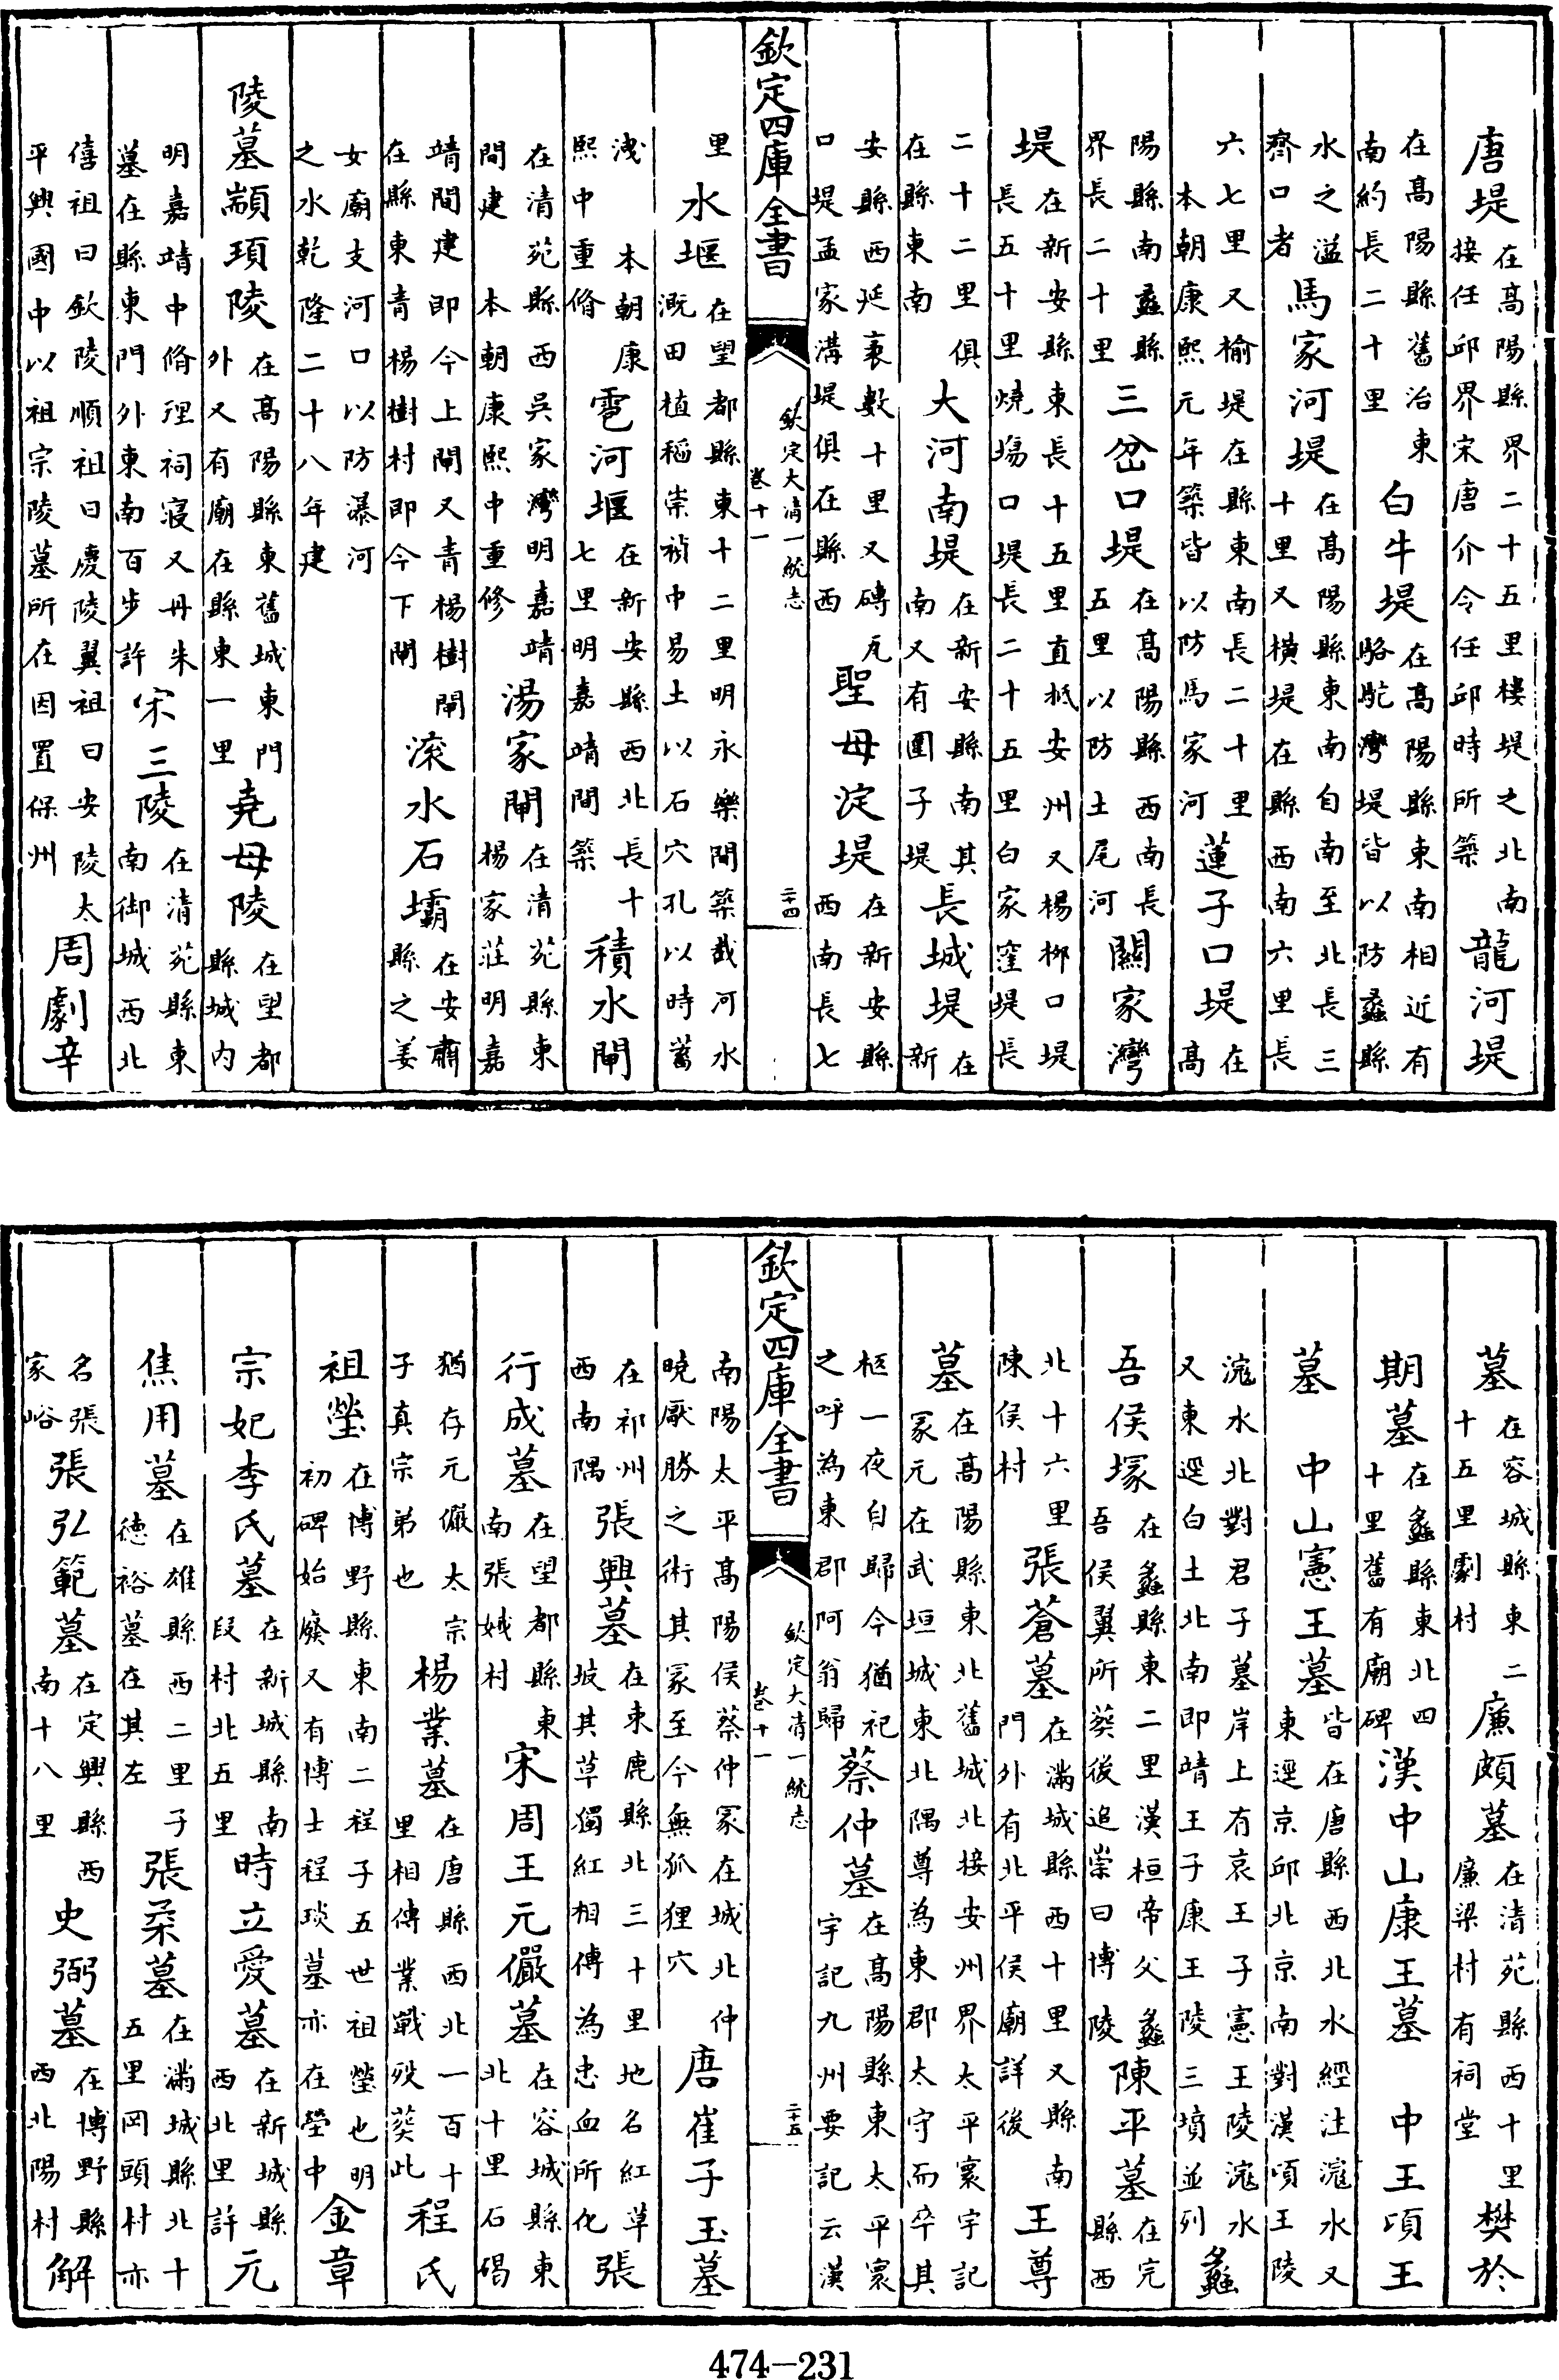 唐堤在高陽縣界二十五里樓堤之北南接任邱界宋唐介令任邱時所築龍河堤
在高陽縣舊治東南約長二十里白牛堤在高陽縣東南相近有駱駝灣堤皆以防蠡縣
水之溢齊口者馬家河堤在高陽縣東南自南至北長三十里又橫堤在縣西南六里長
六七里又榆堤在縣東南長二十里本朝康熙元年築皆以防馬家河蓮子口堤在高
陽縣南蠡縣界長二十里三岔口堤在高陽縣西南長五里以防土尾河關家灣
堤在新安縣東長十五里直抵安州又楊柳口堤長五十里燒塲口堤長二十五里白家窪堤長
二十二里俱在縣東南大河南堤在新安縣南其南又有圍子堤長城堤在新
安縣西延袤數十里又磚瓦口堤孟家溝堤俱在縣西聖母淀堤在新安縣西南長七
欽定四庫全書 欽定大清一統志 卷十一 二十四
里水堰在望都縣東十二里明永樂間築截河水溉田植稻崇禎中易土以石穴孔以時蓄
洩 本朝康熙中重脩雹河堰在新安縣西北長十七里明嘉靖間築積水閘
在清苑縣西吳家灣明嘉靖間建 本朝康熙中重修湯家閘在清苑縣東楊家莊明嘉
靖間建即今上閘又青楊樹閘在縣東青楊樹村即今下閘滚水石壩在安肅縣之姜
女廟支河口以防瀑河之水乾隆二十八年建
陵墓顓頊陵在高陽縣東舊城東門外又有廟在縣東一里堯母陵在望都縣城内
明嘉靖中脩理祠寢又丹朱墓在縣東門外東南百步許宋三陵在清苑縣東南御城西北
僖祖曰欽陵順祖曰慶陵翼祖曰安陵太平興國中以祖宗陵墓所在因置保州周劇辛
墓在容城縣東二十五里劇村廉頗墓在清苑縣西十里廉梁村有祠堂樊於
期墓在蠡縣東北四十里舊有廟碑漢中山康王墓 中王頃王
墓 中山憲王墓皆在唐縣西北水經注滱水又東逕京邱北京南對漢頃王陵
滱水北對君子墓岸上有哀王子憲王陵滱水又東逕白土北南即靖王子康王陵三墳並列蠡
吾侯塚在蠡縣東二里漢桓帝父蠡吾侯翼所葵後追崇曰博陵陳平墓在完縣西
北十六里陳侯村張蒼墓在滿城縣西十里又縣南門外有北平侯廟詳後王尊
墓在高陽縣東北舊城北接安州界太平寰宇記冢元在武垣城東北隅尊為東郡太守而卒其
柩一夜自歸今猶祀之呼為東郡阿翁歸蔡仲墓在高陽縣東太平寰宇記九州要記云漢
欽定四庫全書 欽定大清一統志 卷十一 二十五
南陽太平高陽侯蔡仲冢在城北仲曉厭勝之術其冢至今無狐狸穴唐崔子玉墓
在祁州西南隅張興墓在束鹿縣北三十里地名紅草坡其草獨紅相傳為忠血所化張
行成墓在望都縣東南張娀村宋周王元儼墓在容城縣東北十里石碣
猶存元儼太宗子真宗弟也楊業墓在唐縣西北一百十里相傳業戰歿葵此程氏
祖塋在博野縣東南二程子五世祖塋也明初碑始廢又有博士程琰墓亦在塋中金章
宗妃李氏墓在新城縣南段村北五里時立愛墓在新城縣西北里許元
焦用墓在雄縣西二里子德裕墓在其左張柔墓在滿城縣北十五里岡頭村亦
名張家峪張弘範墓在定興縣西南十八里史弼墓在博野縣西北陽村解
474—231